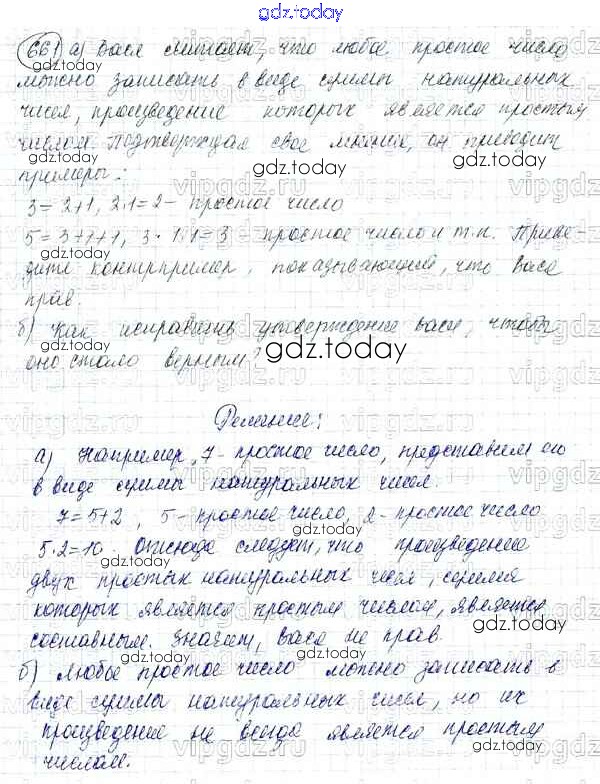 gdz.today
661 а) Вася считает, что любое простое число
можно записать в виде суммы натуральных
чисел, произведение которых является простым
числом. Подтверждая свое мнение, он приводит
gdz.today gdz.today
примеры:
3 = 2+1, 2·1=2 - простое число
5 = 3+1+1, 3·1·1=3 простое число и т.п. Приве-
дите контрпример, показывающий, что Вася
прав.
б) Как исправить утверждение Васи, чтобы
оно стало верным?
gdz.today
Решение:
а) Например, 7 - простое число, представим его
в виде суммы натуральных чисел.
7=5+2, 5 - простое число, 2 - простое число
gdz.today gdz.today
5·2=10. Отсюда следует, что произведение
gdz.today
двух простых натуральных чисел, сумма
которых является простым числом, является
составным. Значит, Вася не прав.
gdz.today gdz.today
б) Любое простое число можно записать в
виде суммы натуральных чисел, но их
произведение не всегда является простым
gdz.today
числом.
gdz.today